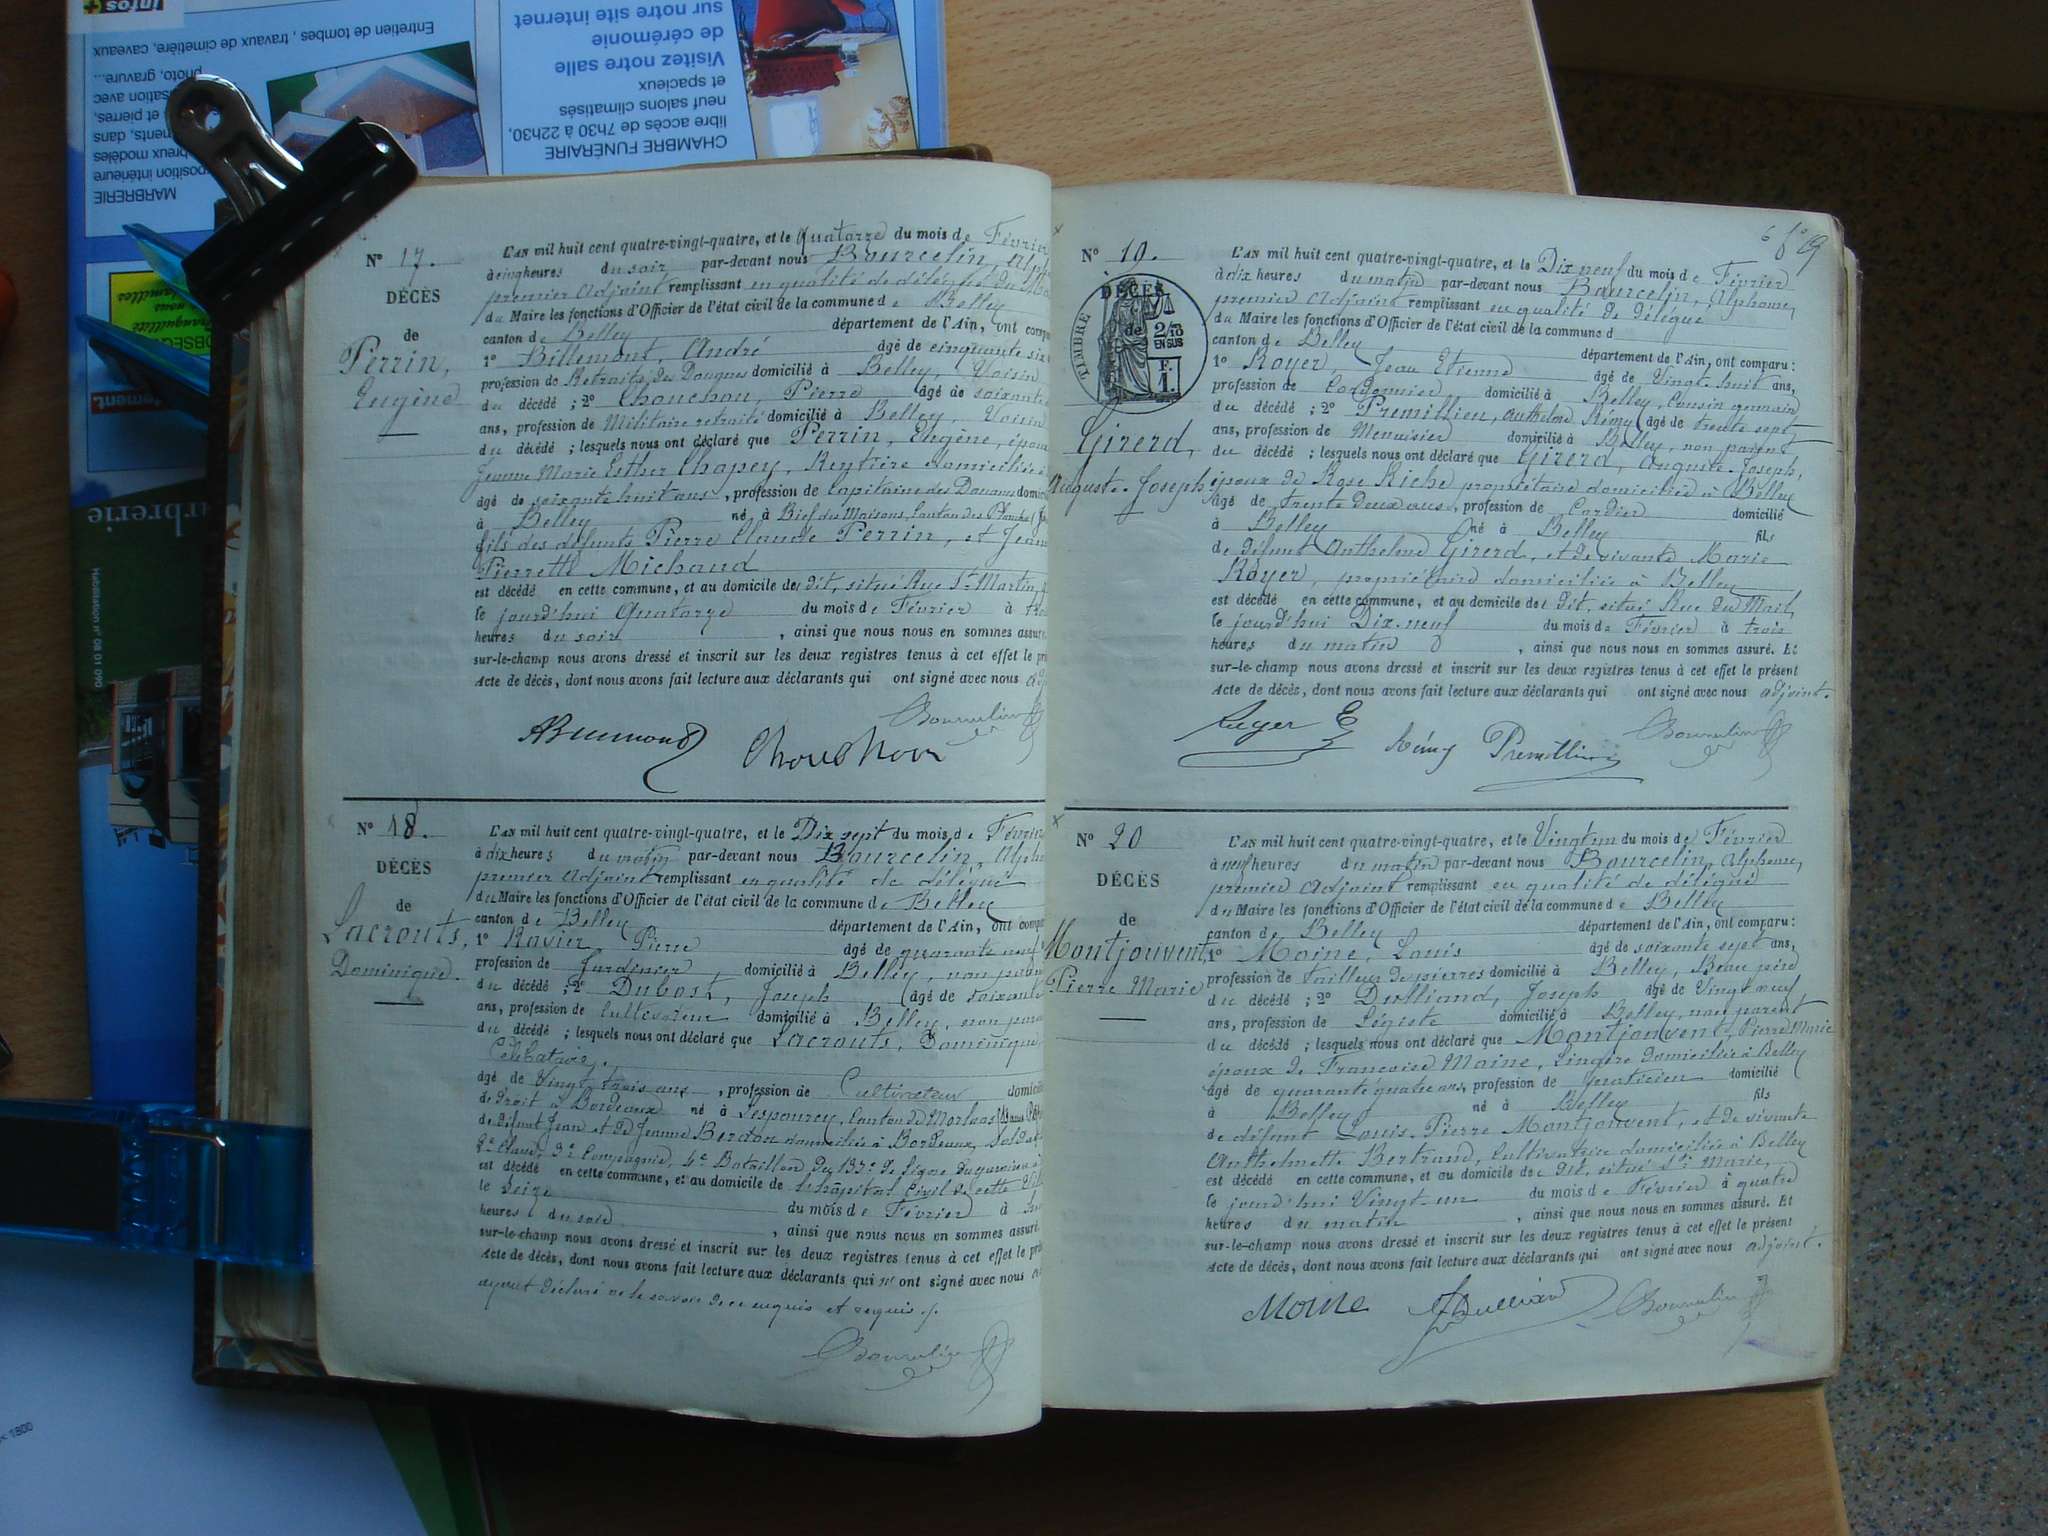 Infos +
Entretien de tombes, travaux de cimetière, caveaux
photo, gravure...
MARBRERIE
CHAMBRE FUNÉRAIRE
libre accès de 7h30 à 22h30,
neuf salons climatisés
et spacieux
Visitez notre salle
de cérémonie
sur notre site internet
Habilitation n° 08 01 090
N° 17.
DÉCÈS
de
Perrin,
Eugène
L'AN mil huit cent quatre-vingt-quatre, et le Quatorze du mois de Février
à cinq heures du soir par-devant nous Bourcelin, Alph
premier Adjoint remplissant en qualité de délégué du
du Maire les fonctions d'Officier de l'état civil de la commune de Belley
canton de Belley département de l'Ain, ont comp
1° Billemont, André âgé de cinquante six
profession de Retraité des Douanes domicilié à Belley, Voisin
du décédé ; 2° Chouchou, Pierre âgé de soixante
ans, profession de Militaire retraité domicilié à Belley, Voisin
du décédé ; lesquels nous ont déclaré que Perrin, Eugène, époux
Jeanne Marie Esther Chapey, Rentière domiciliée à
âgé de soixante huit ans, profession de Capitaine des Douanes domici
à Belley né à Bief des Maisons, Canton des Planches
fils des défunts Pierre Claude Perrin, et Jeanne
Pierrette Michaud
est décédé en cette commune, et au domicile de dit, situé Rue St Martin,
le jourd'hui Quatorze du mois de Février à
heures du soir, ainsi que nous nous en sommes assuré.
sur-le-champ nous avons dressé et inscrit sur les deux registres tenus à cet effet le pré
Acte de décès, dont nous avons fait lecture aux déclarants qui ont signé avec nous adj
Chouchou
N° 18.
DÉCÈS
de
Lacrouts,
Dominique.
L'AN mil huit cent quatre-vingt-quatre, et le Dix sept du mois de Février
à dix heures du matin par-devant nous Bourcelin, Alpho
premier Adjoint remplissant en qualité de délégué
du Maire les fonctions d'Officier de l'état civil de la commune de Belley
canton de Belley département de l'Ain, ont compa
1° Ravier Pierre âgé de quarante neuf
profession de Jardinier, domicilié à Belley, non parent
du décédé ; 2° Dubost, Joseph âgé de soixante
ans, profession de Cultivateur domicilié à Belley, non paren
du décédé ; lesquels nous ont déclaré que Lacrouts, Dominique
Célibataire.
âgé de Vingt trois ans, profession de Cultivateur domicil
de droit à Bordeaux né à Lespourcy, Canton de Morlaas
de défunt Jean et de Jeanne Berdou domiciliée à Bordeaux, Soldat
2e Classe, 3e Compagnie, 4e Bataillon du 133e de ligne en garnison à
est décédé en cette commune, et au domicile de l'hôpital Civil de cette Vil
le Seize du mois de Février à
heures du soir, ainsi que nous nous en sommes assuré.
sur-le-champ nous avons dressé et inscrit sur les deux registres tenus à cet effet le pré
Acte de décès, dont nous avons fait lecture aux déclarants qui n'ont signé avec nous
ayant déclaré ne le savoir de ce enquis et requis
N° 19.
DÉCÈS
de
TIMBRE
2/10
EN SUS
F.
1.
Girerd,
Auguste-Joseph
6 f° 19
L'AN mil huit cent quatre-vingt-quatre, et le Dix neuf du mois de Février
à dix heures du matin par-devant nous Bourcelin, Alphonse,
premier Adjoint remplissant en qualité de délégué
du Maire les fonctions d'Officier de l'état civil de la commune d
canton de Belley département de l'Ain, ont comparu :
1° Royer, Jean Etienne âgé de Vingt huit ans,
profession de Cordonnier domicilié à Belley, Cousin germain
du décédé ; 2° Premillieu, Anthelme Rémy âgé de trente sept
ans, profession de Menuisier domicilié à Belley, non parent
du décédé ; lesquels nous ont déclaré que Girerd, Auguste-Joseph,
époux de Rose Riche propriétaire domiciliée à Belley
âgé de trente deux ans, profession de Cordier domicilié
à Belley né à Belley fils
de défunt Anthelme Girerd, et de vivante Marie
Royer, propriétaire domiciliée à Belley
est décédé en cette commune, et au domicile de dit, situé Rue du Mail,
le jourd'hui Dix-neuf du mois de Février à trois
heures du matin, ainsi que nous nous en sommes assuré. Et
sur-le-champ nous avons dressé et inscrit sur les deux registres tenus à cet effet le présent
Acte de décès, dont nous avons fait lecture aux déclarants qui ont signé avec nous adjoint.
Royer E
Rémy Premillieu
N° 20
DÉCÈS
de
Montjouvent,
Pierre Marie
L'AN mil huit cent quatre-vingt-quatre, et le Vingt un du mois de Février
à neuf heures du matin par-devant nous Bourcelin, Alphonse,
premier Adjoint remplissant en qualité de délégué
du Maire les fonctions d'Officier de l'état civil de la commune de Belley
canton de Belley département de l'Ain, ont comparu :
1° Moine, Louis âgé de soixante sept ans,
profession de Tailleur de pierres domicilié à Belley, Beau père
du décédé ; 2° Dulliand, Joseph âgé de Vingt neuf
ans, profession de Légiste domicilié à Belley, non parent
du décédé ; lesquels nous ont déclaré que Montjouvent, Pierre Marie
époux de Françoise Moine, Lingère domiciliée à Belley
âgé de quarante quatre ans, profession de Praticien domicilié
à Belley né à Belley fils
de défunt Louis-Pierre Montjouvent, et de vivante
Anthelmette Bertrand, Cultivatrice domiciliée à Belley
est décédé en cette commune, et au domicile de dit, situé Ste Marie,
le jourd'hui Vingt-un du mois de Février à quatre
heures du matin, ainsi que nous nous en sommes assuré. Et
sur-le-champ nous avons dressé et inscrit sur les deux registres tenus à cet effet le présent
Acte de décès, dont nous avons fait lecture aux déclarants qui ont signé avec nous adjoint.
Moine
JDulliand